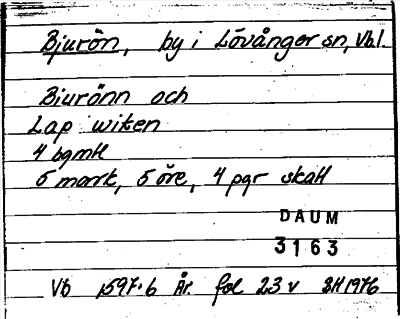 Bjurön, by i Lövånger sn, Vbl.
Biurönn och
Lap witen
4 bgmtl
5 mark, 5 öre, 4 pgr skatt
DAUM
3163
Vb 1597:6 År. fol 23 v SH 1976